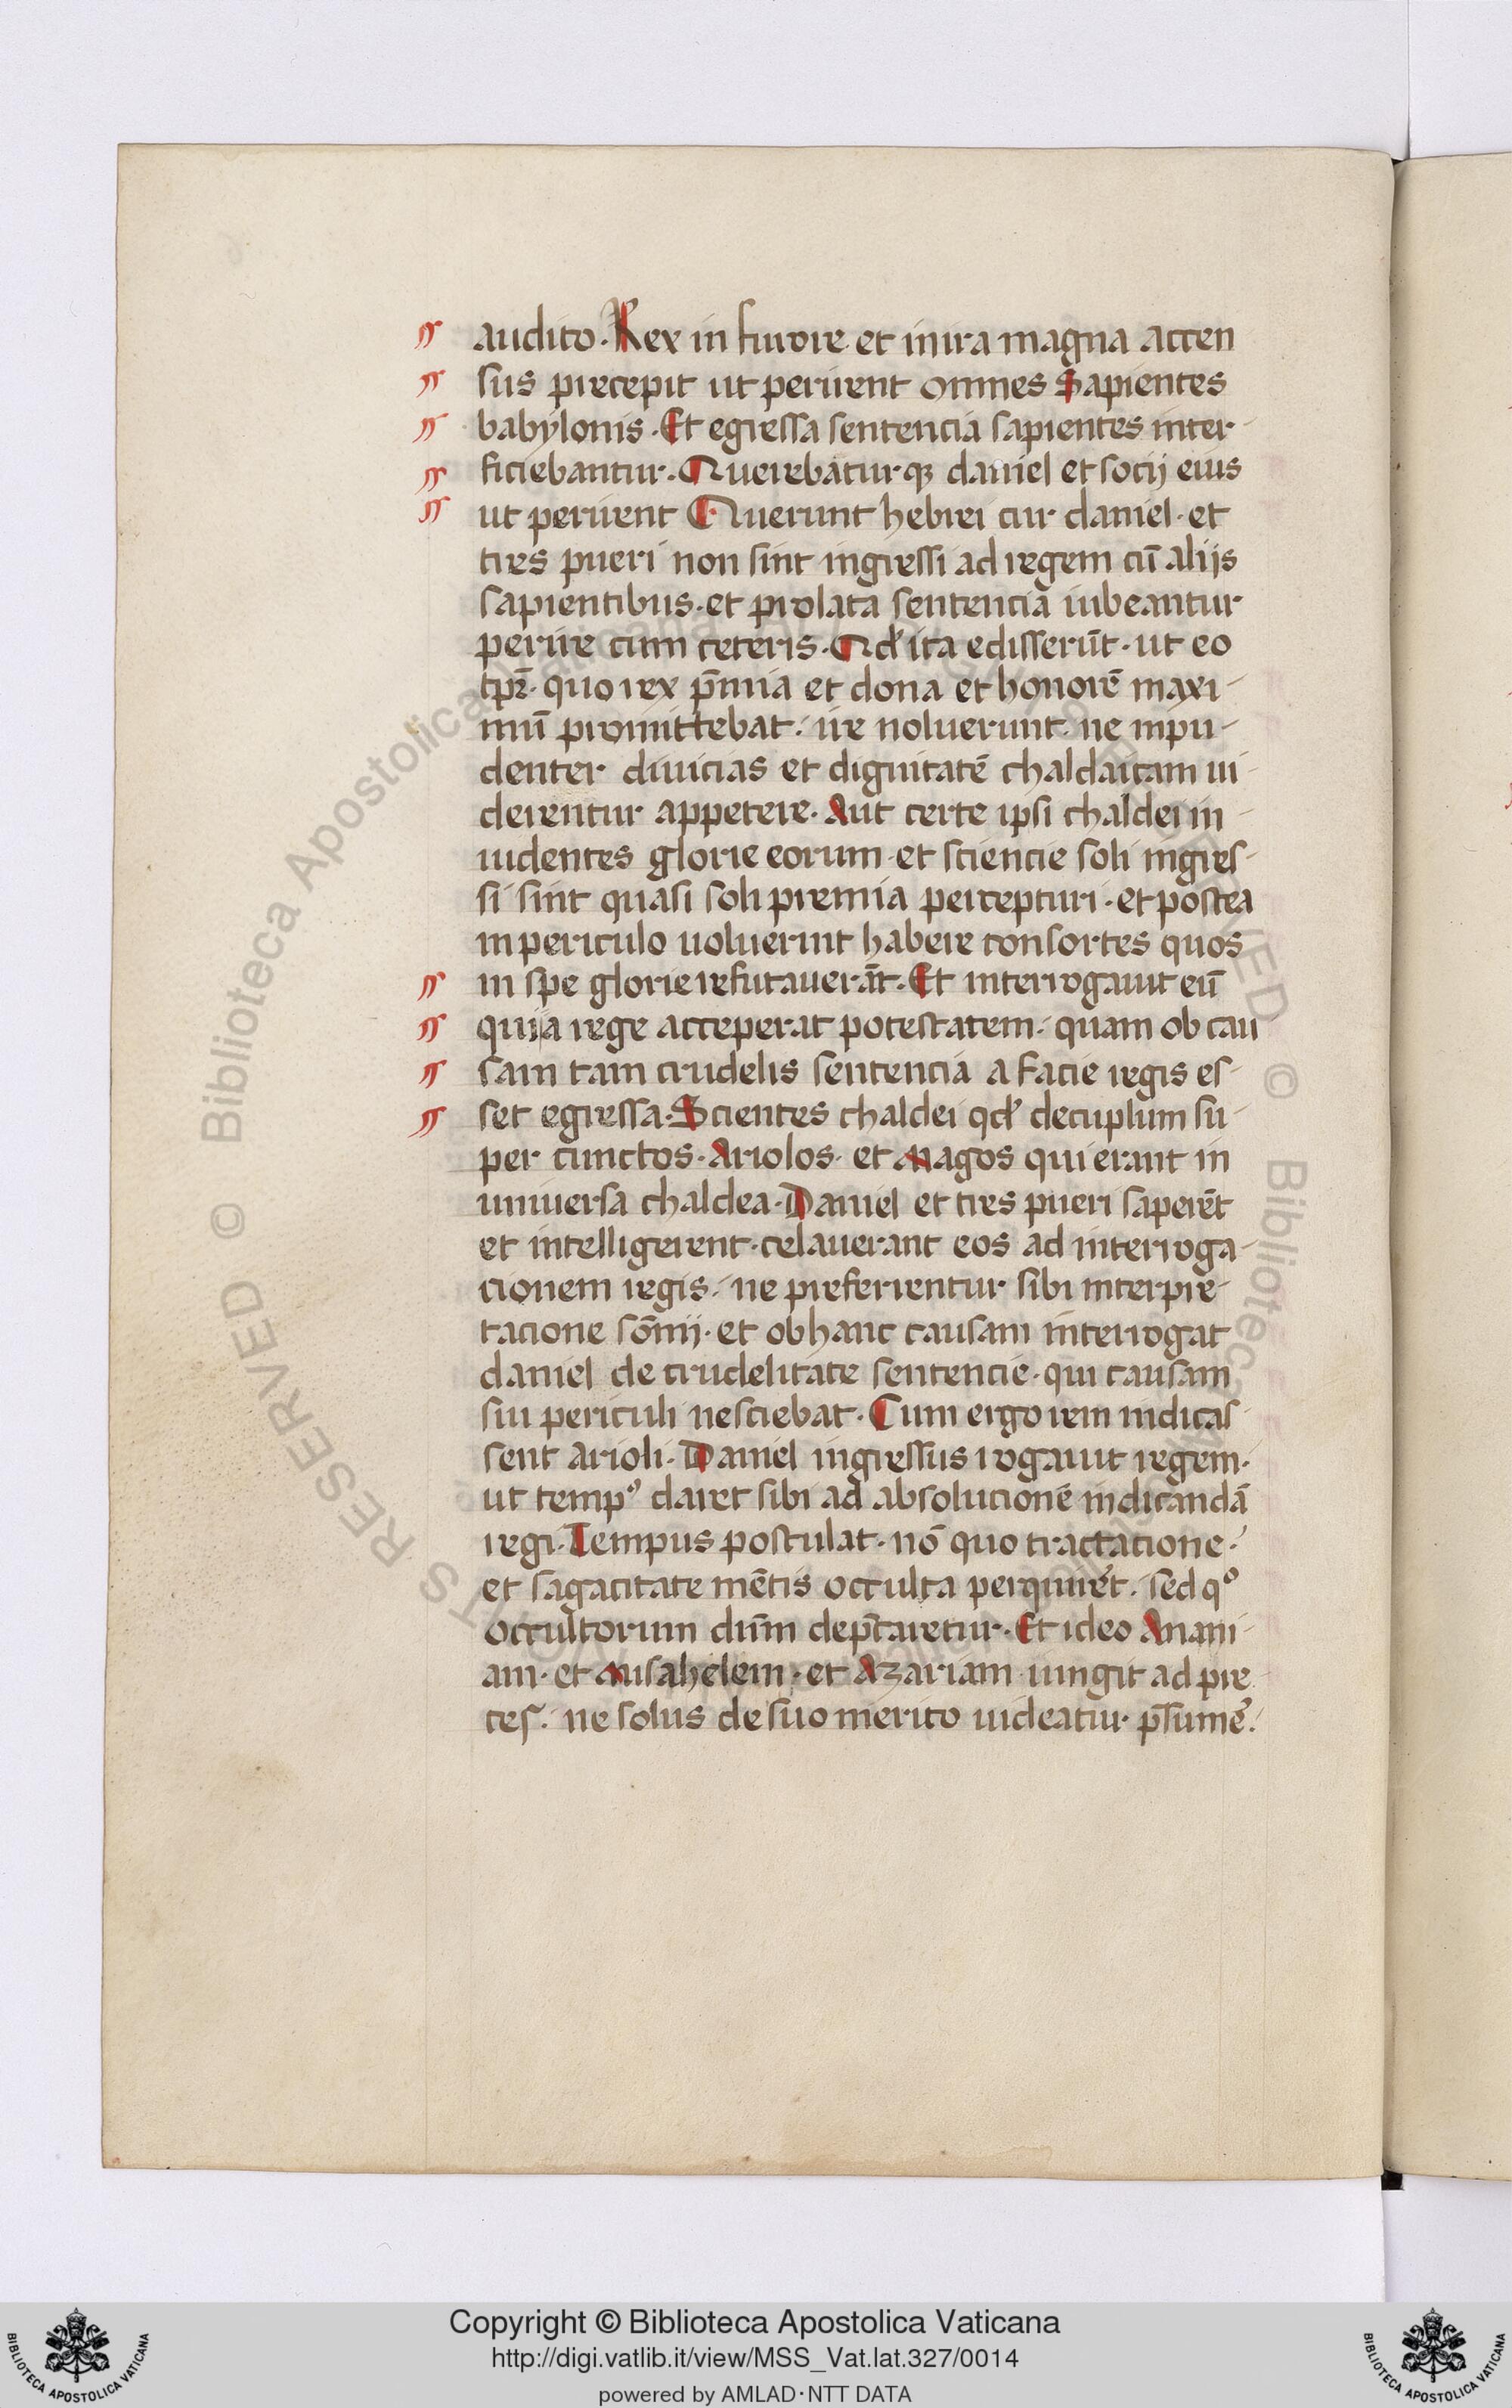 audito. Rex in furore et in ira magna accen
sus precepit ut perirent omnes Sapientes
babylonis. Et egressa sentencia sapientes inter-
ficiebantur. Querebaturqꝫ daniel et socij eius
ut perirent Querunt hebrei cur daniel. et
tres pueri non sint ingressi ad regem cū alijs
sapientibus. et prolata sentencia iubeantur
perire cum ceteris. Qđ ita edisserūt. ut eo
tpr̄. quo rex p̄mia et dona et honorē maxi-
mū promittebat. ire noluerunt. ne inpu-
denter diuicias et dignitatē chaldaicam ui-
derentur appetere. Aut certe ipsi chaldei in-
uidentes glorie eorum. et sciencie soli ingres-
si sint quasi soli premia percepturi. et postea
in periculo uoluerint habere consortes quos
in spe glorie refutauerāt. Et interrogauit eū
qui a rege acceperat potestatem. quam ob cau
sam tam crudelis sentencia a facie regis es-
set egressa. Scientes chaldei qđ decuplum su-
per cunctos. Ariolos. et Magos qui erant in
uniuersa chaldea. Daniel et tres pueri saperēt
et intelligerent. celauerant eos ad interroga-
cionem regis. ne preferrentur sibi interpre-
tacione sōnij. et ob hanc causam interrogat
daniel de crudelitate sentencie. qui causam
sui periculi nesciebat. Cum ergo rem indicas-
sent arioli. Daniel ingressus rogauit regem.
ut tempꝰ daret sibi ad absolucionē indicandā
regi. Tempus postulat. nō quo tractacione.
et sagacitate mētis occulta perquireͬt. sed qº
occultorum dūm dep̄caretur. Et ideo Anani-
am. et Misahelem. et Azariam iungit ad pre
ces. ne solus de suo merito uideatur p̄sumē.
Copyright © Biblioteca Apostolica Vaticana
http://digi.vatlib.it/view/MSS_Vat.lat.327/0014
powered by AMLAD·NTT DATA
BIBLIOTECA APOSTOLICA VATICANA
BIBLIOTECA APOSTOLICA VATICANA